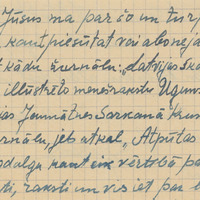 Jūsus na par šo un turp
kaut piesūtat vai abonēja
t kādu žurnālu: „Latvijas Ska
illūstrēto mēnešrakstu Ugun
jas Jaunātnes Sarkanā Krus
rnālu, jeb atkal, „Atpūtas
odaļu kaut cik vērtībā pa
ti, raksti un vis iet par